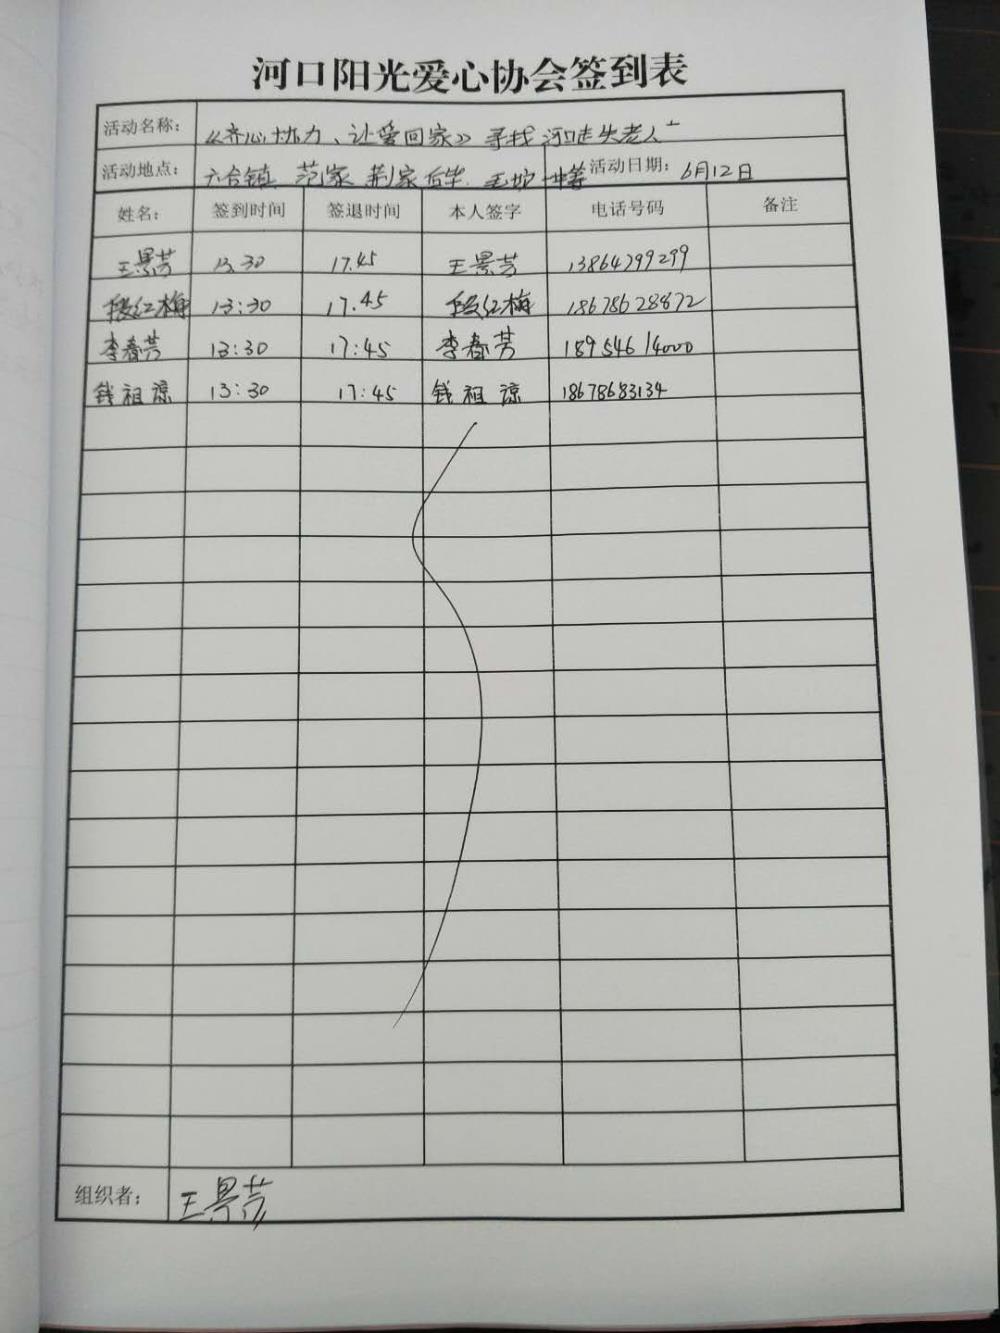 河口阳光爱心协会签到表
活动名称: 《齐心协力、让爱回家》寻找河口走失老人
活动地点: 六合镇 范家 荆家 后毕 毛坨 等 活动日期: 6月12日
姓名: 签到时间 签退时间 本人签字 电话号码 备注
王景芳 13.30 17.45 王景芳 13864799299
段红梅 13:30 17.45 段红梅 18678628872
李春芳 13:30 17:45 李春芳 18954614000
钱祖谅 13:30 17:45 钱祖谅 18678683134
组织者: 王景芳